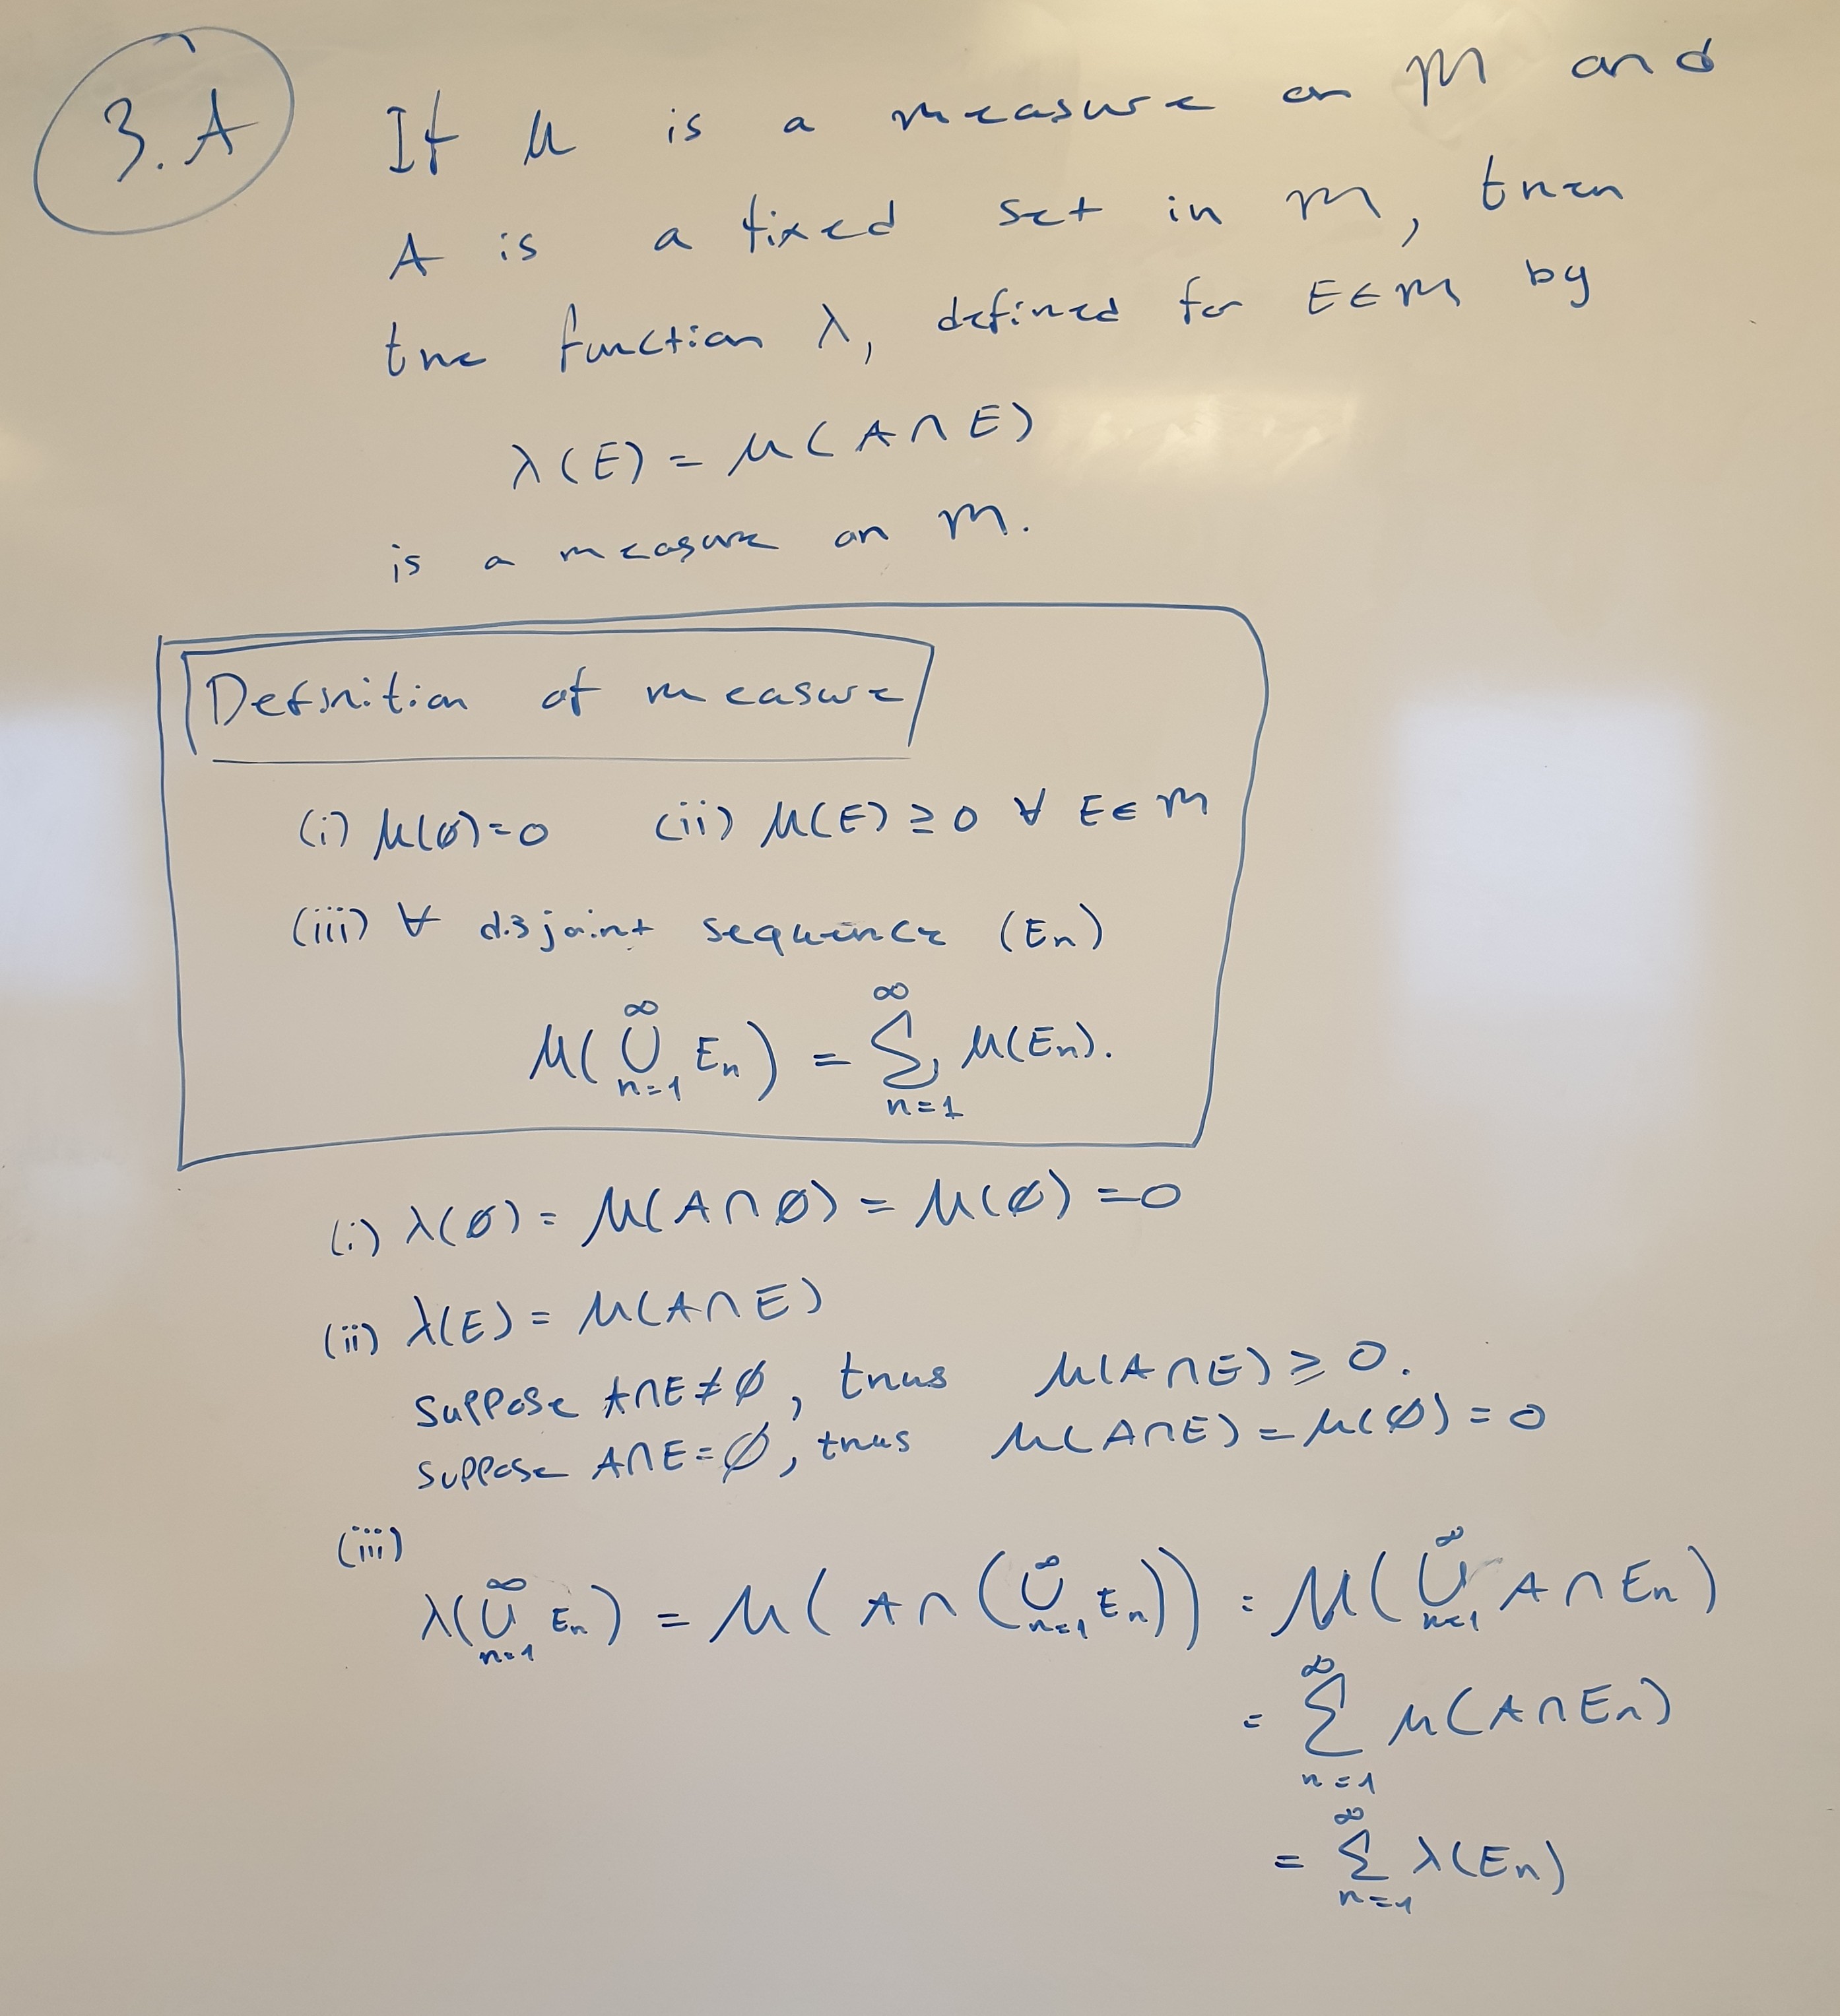 3.A
If μ is a measure on M and
A is a fixed set in M, then
the function λ, defined for E∈M by
λ(E) = μ(A∩E)
is a measure on M.
Definition of measure
(i) μ(∅)=0 (ii) μ(E) ≥ 0 ∀ E∈M
(iii) ∀ disjoint sequence (En)
μ(⋃_{n=1}^{∞} En) = ∑_{n=1}^{∞} μ(En).
(i) λ(∅) = μ(A∩∅) = μ(∅) = 0
(ii) λ(E) = μ(A∩E)
Suppose A∩E≠∅, thus μ(A∩E) ≥ 0.
Suppose A∩E=∅, thus μ(A∩E) = μ(∅) = 0
(iii)
λ(⋃_{n=1}^{∞} En) = μ(A∩(⋃_{n=1}^{∞} En)) = μ(⋃_{n=1}^{∞} A∩En)
= ∑_{n=1}^{∞} μ(A∩En)
= ∑_{n=1}^{∞} λ(En)